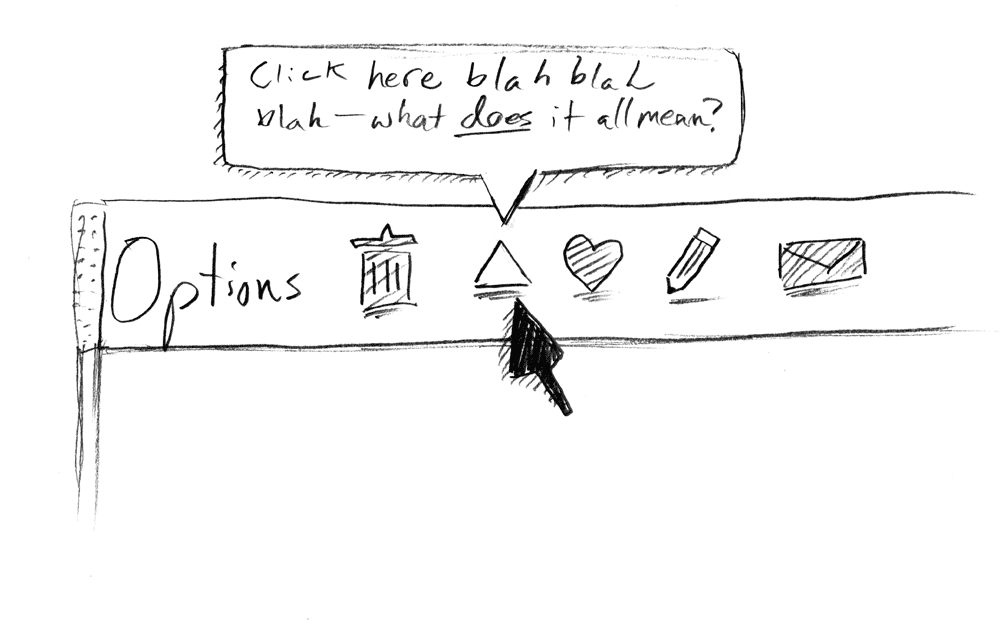 Click here blah blah
blah—what does it all mean?
Options